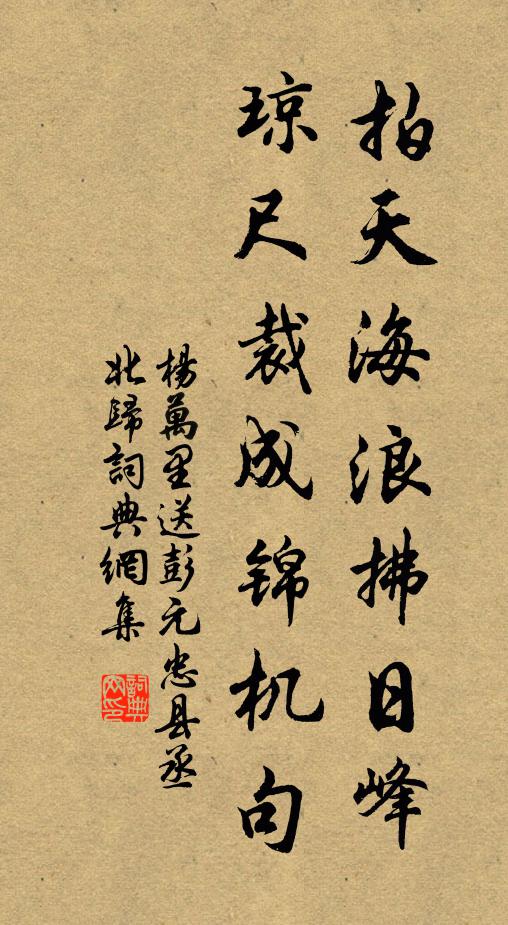 拍天海浪拂日峰
琼尺裁成锦机句
楊萬里送彭元忠县丞
北歸詞典網集
詞典網印